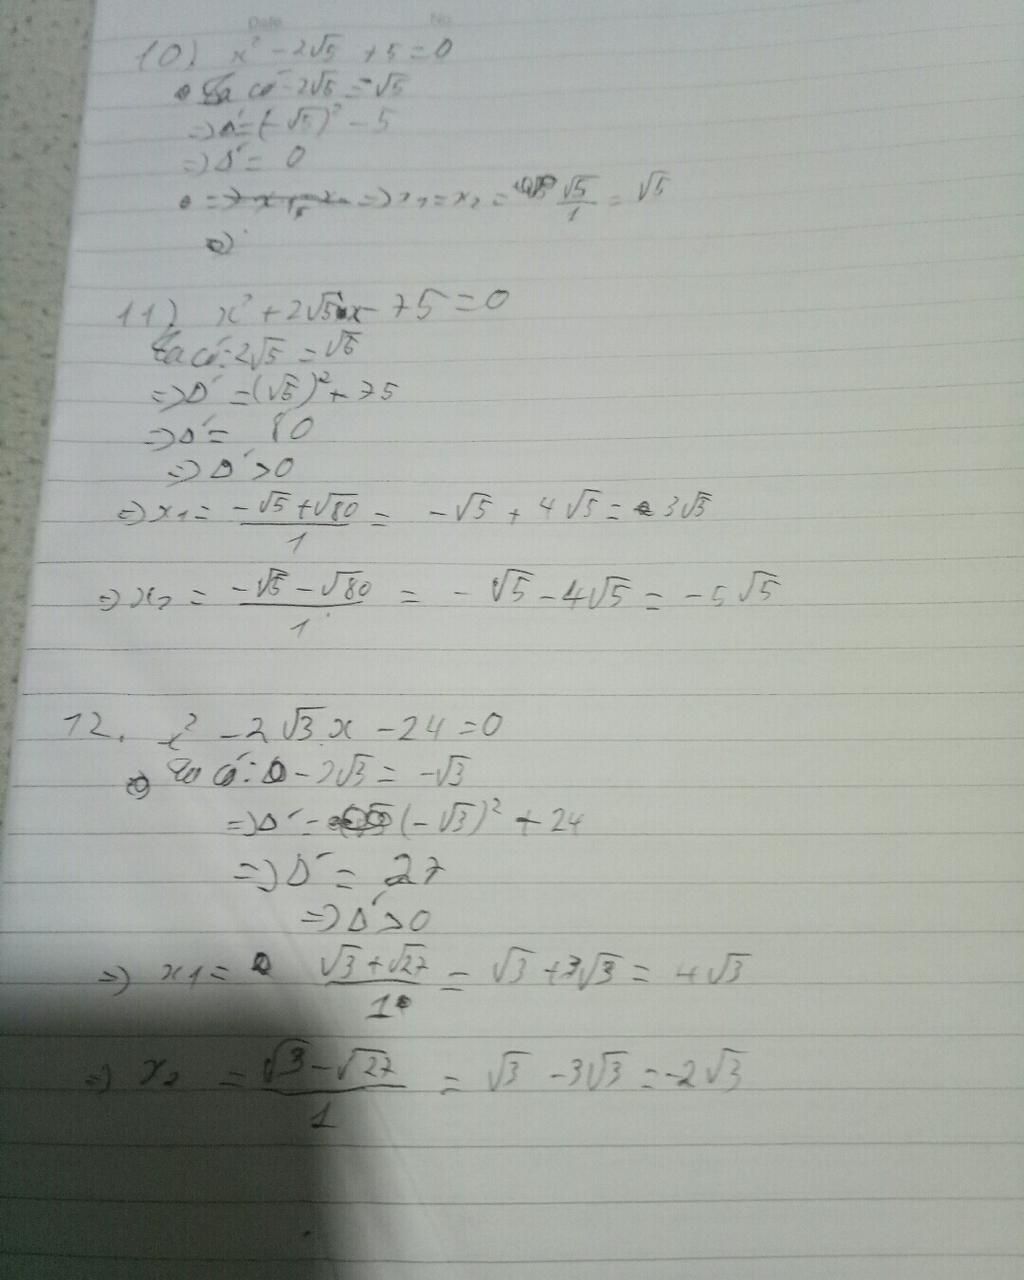 Date No
10) x² - 2√5 + 5 = 0
Ta có - 2√5 = -√5
=> Δ' = (-√5)² - 5
=> Δ' = 0
=> x₁ = x₂ = √5/1 = √5
11) x² + 2√5x - 75 = 0
Ta có: 2√5 = √5
=> Δ' = (√5)² + 75
=> Δ' = 80
=> Δ' > 0
=> x₁ = (-√5 + √80)/1 = -√5 + 4√5 = 3√5
=> x₂ = (-√5 - √80)/1 = -√5 - 4√5 = -5√5
12. x² - 2√3x - 24 = 0
Ta có: - 2√3 = -√3
=> Δ' = (-√3)² + 24
=> Δ' = 27
=> Δ' > 0
=> x₁ = (√3 + √27)/1 = √3 + 3√3 = 4√3
=> x₂ = (√3 - √27)/1 = √3 - 3√3 = -2√3